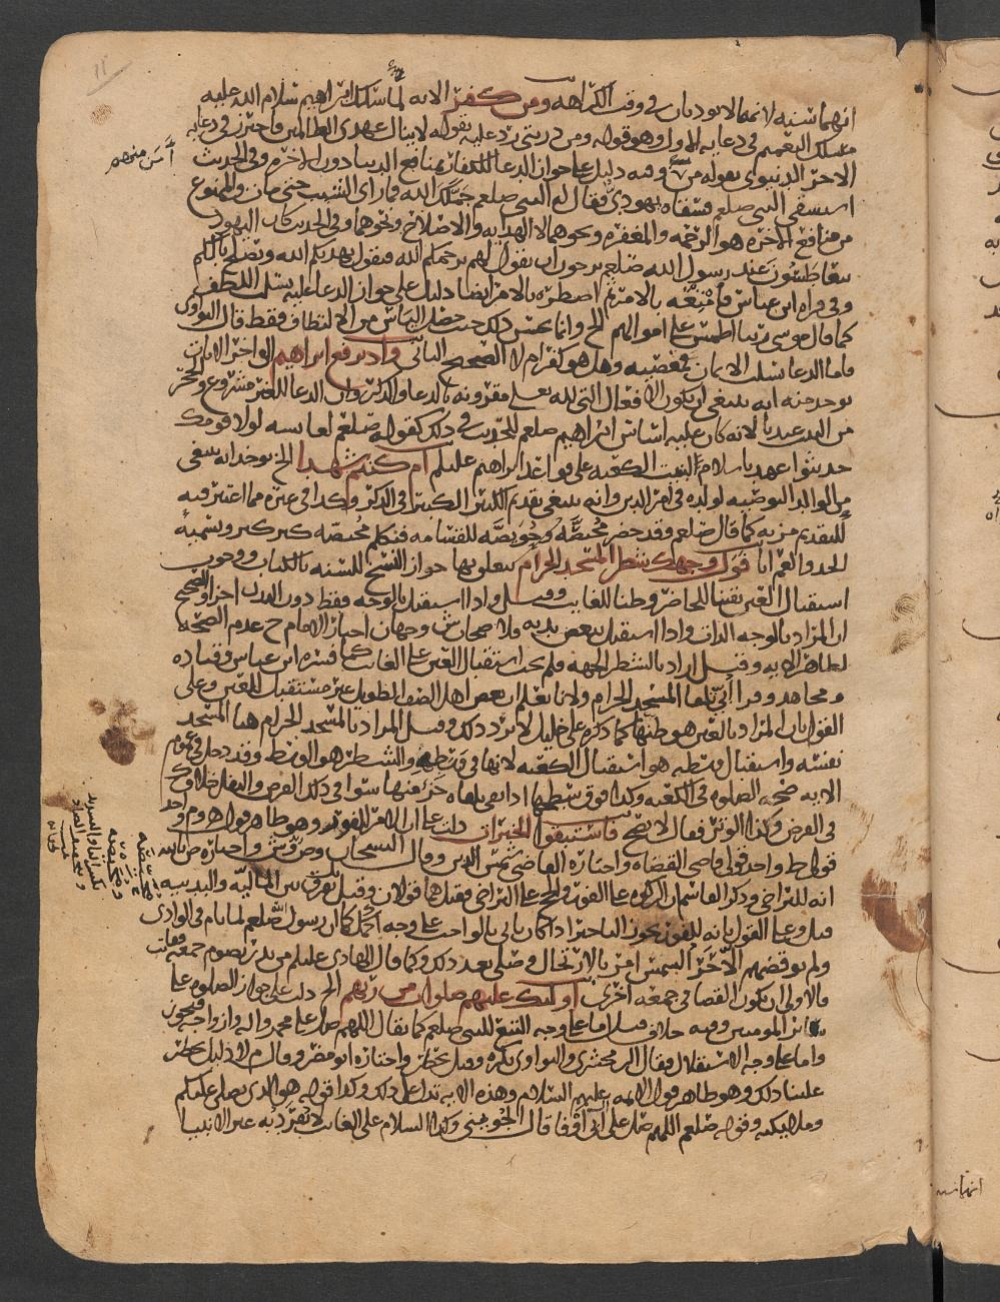 انهما سنيه لانهما لا يوديان في وقت الكراهه ومن كفر الايه لما سلك ابراهيم سلام الله عليه
مسلك التعميم في دعايه الاول وهو قوله ومن ذريتي رد عليه بقوله لا ينال عهدي الظالمين فاحترز في دعايه
الاخر الدنيوي بقوله من وفيه دليل على جواز الدعا للكفار بمنافع الدنيا دون الاخره وفي الحديث
استسقى النبي صلعم فسقاه يهودي فقال له النبي صلعم جملك الله فما راى الشيب حتى مات والممنوع
من منافع الاخره هو الرحمه والمغفره ونحوهما لا الهدايه والاصلاح ونحوهما وفي الحديث كان اليهود
يتعاطسون عند رسول الله صلعم يرجون ان يقول لهم يرحمكم الله فيقول يهديكم الله ويصلح بالكم
وفي قراه ابن عباس فامتعه بالامر ثم اضطره بالامر ايضا دليل على جواز الدعا عليه بسلب اللطف
كما قال موسى ربنا اطمس على اموالهم الخ وانما يحسن ذلك حيث حصل الياس من الالتطاف فقط قال النواوي
واما الدعا بسلب الايمان فمعصيه وهل هو كفر ام لا الصحيح الثاني واذ يرفع ابراهيم الى اخر الايات
يوخذ منه انه ينبغي ان يكون الافعال التي لله تعلى مقرونه بالدعا والذكر وان الدعا للغير مشروع والحجر
لانه كان عليه اساس ابراهيم صلعم للحديث في ذلك كقوله صلعم لعايشه لولا قومك
حديثوا عهد باسلام البيت الكعبه على قواعد ابراهيم عليلم ام كنتم شهدا الخ يوخذ انه ينبغي
من الوالد التوصيه لولده في امر الدين وانه ينبغي تقديم الكبير الكبير في الذكر وكذا في غيره مما اعتبر فيه
للتقديم مزيه كما قال صلعم وقد حضر محيصه وحويصه للقسامه فتكلم محيصه كبر كبر وتسميه
الجد والعم ابا فول وجهك شطر المسجد الحرام يتعلق بها جواز النسخ للسنه بالكتاب ووجوب
استقبال العين يقينا للحاضر وظنا للغايب وقيل واذا استقبل بالوجه فقط دون البدن اجزا والصحيح
ان المراد بالوجه الذات واذا استقبل ببعض بدنه فلاصحابش وجهان اختار الامام ح عدم الصحه
لظاهر الايه وقيل اراد بالشطر الجهه فلم يجب استقبال العين على الغايب كما فسره ابن عباس وقتاده
ومجاهد وقرا ابي تلقا المسجد الحرام ولانا نعلم ان بعض اهل الصف الطويل غير مستقبل للعين وعلى
القول ان المراد بالعين هو ظنها كما ذكره على خليل لا يرد ذلك وقيل المراد بالمسجد الحرام هنا المسجد
نفسه واستقبال وسطه هو استقبال الكعبه لانها في وسطه والشطر هو الوسط وقد دخل في عموم
الايه صحه الصلوه في الكعبه وكذا فوق سطحها اذا بقي تلقاه جزء منها سوا في ذلك الفرض والنفل خلاف ك
في الفرض وكذا الوتر فقال لا يصح فاستبقوا الخيرات دلت على ان الامر للفور وهو ظاهر قول هـ وم و واحد
قولي ط واحد قولي قاضي القضاه واختاره القاضي شمس الدين وقال الشيخان وص وش واختاره ص بالله
انه للتراخي وذكر القاسم ان الزكوه على الفور والحج على التراخي فقيل هما قولان وقيل يفرق بين الماليه والبدنيه
قيل وعلى القول بانه للفور يجوز التاخير اذا كان ياتي بالواجب على وجه اكمل كما ان رسول الله صلعم لما نام في الوادي
ولم يوقضهم الا حر الشمس امر بالارتحال وصلى بعد ذلك وكما قال الهادي عليلم من نذر بصوم جمعه ففاتت
فالاولى ان يكون القضا في جمعه اخرى اولئك عليهم صلوات من ربهم الخ دلت على جواز الصلوه على
ساير المومنين وفيه خلاف قيل اما على وجه التبع للنبي صلعم كما يقال اللهم صل على محمد واله وازواجه فيجوز
واما على وجه الاستقلال فقال الزمخشري والنواوي يكره وقيل يحظر واختاره ابو مضر وقال م لا دليل يحظر
علينا ذلك وهو ظاهر قول الايمه عليهم السلام وهذه الايه تدل على ذلك وكذا قوله هو الذي يصلي عليكم
وملايكته وقوله صلعم اللهم صل على آل ابي اوفى قال الجويني وكذا السلام على الغايب لا يفرد به غير الانبيا
آمن منهم